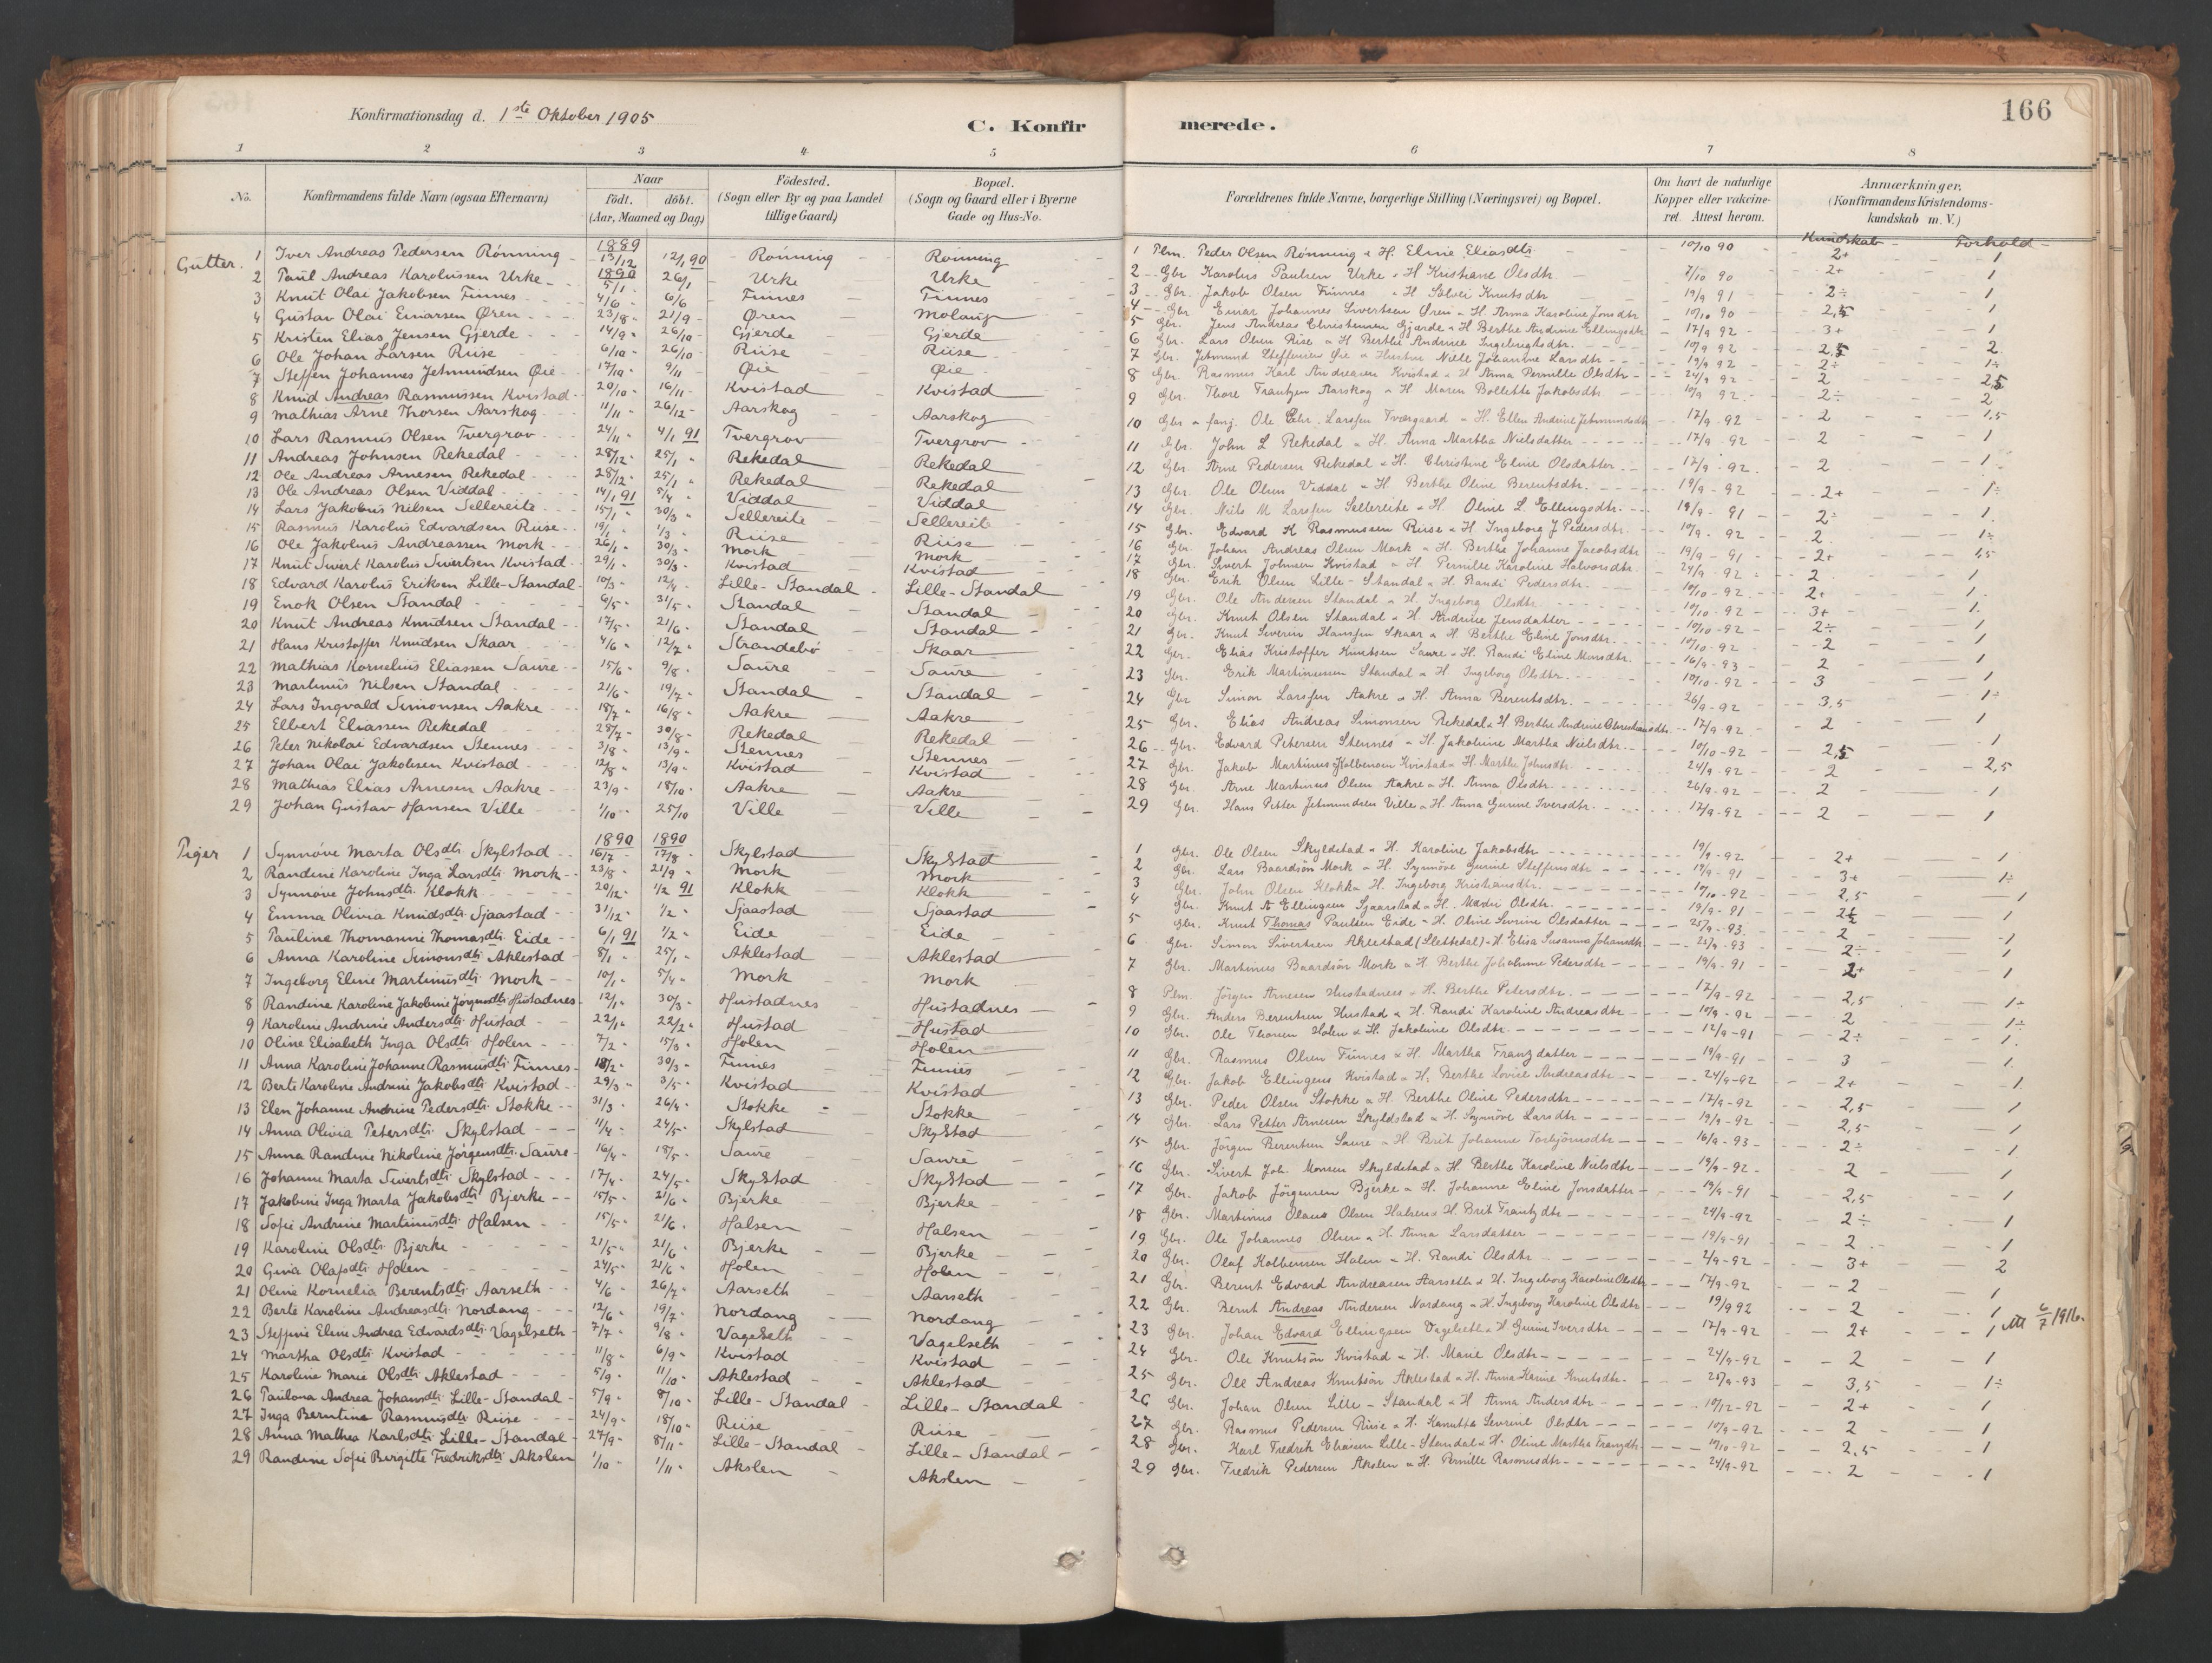 Konfirmationsdag d. 1ste Oktober 1905
C. Konfir
1 2 3 4 5
No. Konfirmandens fulde Navn (ogsaa Efternavn) Naar födt. döbt. (Aar, Maaned og Dag) Födested. (Sogn eller By og paa Landet tillige Gaard) Bopæl. (Sogn og Gaard eller i Byerne Gade og Hus-No.
Gutter.
1889
1 Iver Andreas Pedersen Rönning 13/12 12/1 90 Rönning Rönning
1890
2 Paul Andreas Karolussen Urke 5/1 26/1 Urke Urke
3 Knut Olai Jakobsen Finnes 4/6 6/6 Finnes Finnes
4 Gustav Olai Einarsen Øren 23/8 21/9 Øren Molaup
5 Kristen Elias Jensen Gjerde 14/9 26/10 Gjerde Gjerde
6 Ole Johan Larsen Riise 6/10 26/10 Riise Riise
7 Steffen Johannes Jetmundsen Øie 17/10 9/11 Øie Øie
8 Knud Andreas Rasmussen Kvistad 20/10 16/11 Kvistad Kvistad
9 Mathias Arne Thorsen Aarskog 11/11 26/12 Aarskog Aarskog
10 Lars Rasmus Olsen Tvergrov 24/11 4/1 91 Tvergrov Tvergrov
11 Andreas Johnsen Rekedal 28/12 25/1 Rekedal Rekedal
12 Ole Andreas Arnesen Rekedal 28/12 25/1 Rekedal Rekedal
13 Ole Andreas Olsen Viddal 14/1 91 5/4 Viddal Viddal
14 Lars Jakobus Nilsen Sellereite 15/1 30/3 Sellereite Sellereite
15 Rasmus Karolus Edvardsen Riise 19/1 1/3 Riise Riise
16 Ole Jakobus Andreassen Mork 26/1 30/3 Mork Mork
17 Knut Sivert Karolus Sivertsen Kvistad 29/1 30/3 Kvistad Kvistad
18 Edvard Karolus Eriksen Lille-Standal 10/3 12/4 Lille-Standal Lille-Standal
19 Enok Olsen Standal 6/5 31/5 Standal Standal
20 Knut Andreas Knudsen Standal 17/5 21/6 Standal Standal
21 Hans Kristoffer Knudsen Skaar 4/6 12/7 Strandebö Skaar
22 Mathias Kornelius Eliassen Saure 15/6 9/8 Saure Saure
23 Martinus Nilsen Standal 21/6 19/7 Standal Standal
24 Lars Ingvald Simonsen Aakre 18/7 16/8 Aakre Aakre
25 Elbert Eliassen Rekedal 28/7 30/8 Rekedal Rekedal
26 Peter Nikolai Edvardsen Stennes 3/8 13/9 Stennes Stennes
27 Johan Olai Jakobsen Kvistad 12/8 13/9 Kvistad Kvistad
28 Mathias Elias Arnesen Aakre 23/9 18/10 Aakre Aakre
29 Johan Gustav Hansen Ville 1/10 25/10 Ville Ville
Piger
1890 1890
1 Synnöve Marta Olsdtr Skylstad 16/7 17/8 Skylstad Skylstad
2 Randine Karoline Inga Larsdtr. Mork 23/8 21/9 Mork Mork
3 Synnöve Johnsdtr. Klokk 20/12 1/2 91 Klokk Klokk
4 Emma Olivia Knudsdtr. Sjaastad 31/12 1/2 Sjaastad Sjaastad
5 Pauline Thomasine Thomasdtr. Eide 6/1 91 1/2 Eide Eide
6 Anna Karoline Simonsdtr. Aklestad 8/1 25/1 Aklestad Aklestad
7 Ingeborg Eline Martinusdtr. Mork 10/1 5/4 Mork Mork
8 Randine Karoline Jakobine Jörgensdtr. Hustadnes 12/1 30/3 Hustadnes Hustadnes
9 Karoline Andrine Andersdtr. Hustad 22/1 22/2 Hustad Hustad
10 Oline Elisabeth Inga Olsdtr. Holen 7/2 15/3 Holen Holen
11 Anna Karoline Johanne Rasmusdtr. Finnes 18/2 30/3 Finnes Finnes
12 Berte Karoline Andrine Jakobsdtr. Kvistad 29/3 3/5 Kvistad Kvistad
13 Elen Johanne Andrine Pedersdtr. Stokke 31/3 26/4 Stokke Stokke
14 Anna Olivia Petersdtr. Skylstad 11/4 24/5 Skylstad Skylstad
15 Anna Randine Nikoline Jörgensdtr. Saure 16/4 18/5 Saure Saure
16 Johanne Marta Sivertsdtr. Skylstad 17/4 24/5 Skylstad Skylstad
17 Jakobine Inga Marta Jakobsdtr. Bjerke 15/5 21/6 Bjerke Bjerke
18 Sofie Andrine Martinusdtr. Halsen 15/5 21/6 Halsen Halsen
19 Karoline Olsdtr. Bjerke 21/5 21/6 Bjerke Bjerke
20 Gina Olafsdtr. Holen 24/5 21/6 Holen Holen
21 Oline Kornelia Berentsdtr. Aarseth 4/6 26/7 Aarseth Aarseth
22 Berte Karoline Andreasdtr. Nordang 12/6 19/7 Nordang Nordang
23 Steffine Eline Andrea Edvardsdtr. Vagelseth 7/7 9/8 Vagelseth Vagelseth
24 Martha Olsdtr. Kvistad 11/8 6/9 Kvistad Kvistad
25 Karoline Marie Olsdtr. Aklestad 5/9 11/10 Aklestad Aklestad
26 Paulona Andrea Johansdtr. Lille-Standal 5/9 8/10 Lille-Standal Lille-Standal
27 Inga Berntine Rasmusdtr. Riise 24/9 18/10 Riise Riise
28 Anna Mathea Karlsdtr. Lille-Standal 27/9 8/11 Lille-Standal Lille-Standal
29 Randine Sofie Birgitte Fredriksdtr. Akslen 1/10 1/11 Akslen Akslen
166
merede.
6 7 8
Forældrenes fulde Navne, borgerlige Stilling (Næringsvei) og Bopæl. Om havt de naturlige Kopper eller vakcineret. Attest herom. Anmærkninger. (Konfirmandens Kristendomskundskab m. V.)
Kundskab Forhold
1 Plm. Peder Olsen Rönning & H. Eline Eliasdtr 10/10 90 2+ 1
2 Gbr Karolus Paulsen Urke & H Kristiane Olsdtr 7/10 90 2+ 1
3 Gbr. Jakob Olsen Finnes & H Solvei Knutsdtr 19/9 91 2÷ 1
4 Gbr Einar Johannes Sivertsen Øren & H. Anna Karoline Jonsdtr 10/10 90 2,5 1
5 Gbr. Jens Andreas Christensen Gjærde & H Berthe Andrine Ellingsdtr 17/9 92 3+ 1
6 Gbr. Lars Olsen Rise & H Berthe Andrine Ingebrigtsdtr. 10/9 92 2,5 2
7 Gbr. Jetmund Steffensen Øie & Hustru Nille Johanne Larsdtr 19/9 92 2÷ 1÷
8 Gbr. Rasmus Karl Andreasen Kvistad & H Anna Pernille Olsdtr 24/9 92 2 2,5
9 Gbr. Thore Frantzen Aarskog & H Maren Bollette Jakobsdtr 10/9 92 2÷ 2
10 Gbr & fanj. Ole Chr. Larssen Tværgaard & H. Ellen Andrine Jetmundsdtr 17/9 92 2 1,5
11 Gbr. John L Rekedal & H. Anna Martha Nielsdatter 17/9 92 2 1
12 Gbr. Arne Pedersen Rekedal & H. Christine Eline Olsdatter 17/9 92 2 1
13 Gbr. Ole Olsen Viddal & H Berthe Oline Berentsdtr. 19/9 92 2+ 1÷
14 Gbr. Nils M Larssen Sellereite & H. Oline L. Ellingsdtr. 19/9 91 2÷ 1
15 Gbr. Edvard K Rasmussen Riise & H. Ingeborg J Pedersdtr. 10/9 92 2 1÷
16 Gbr. Johan Andreas Olsen Mork & H. Berthe Johanne Jacobsdtr 19/9 91 2+ 1,5
17 Gbr. Sivert Johnsen Kvistad & H Pernille Karoline Halvorsdtr. 24/9 92 2 1
18 Gbr Erik Olsen Lille-Standal & H. Randi Pedersdtr. 10/10 92 2+ 1
19 Gbr. Ole Andersen Standal & H. Ingeborg Olsdtr 10/10 92 3+ 1
20 Gbr. Knut Olsen Standal & H. Andrine Jensdatter 10/10 92 2÷ 1
21 Gbr. Knut Severin Hanssen Skaar & H Berthe Eline Jonsdtr. 10/10 92 2 1
22 Gbr. Elias Kristoffer Knutsen Saure & H. Randi Eline Monsdtr. 16/9 93 2 1
23 Gbr. Erik Martinussen Standal & H. Ingeborg Olsdtr. 10/10 92 3 1
24 Gbr. Simon Larssen Aakre & H. Anna Berentsdtr. 26/9 92 3,5 1÷
25 Gbr. Elias Andreas Simonsen Rekedal & H. Berthe Andrine 17/9 92 2 1
26 Gbr. Edvard Petersen Stennes & H. Jakobine Martha Nielsdtr. 10/10 92 2,5 1
27 Gbr. Jakob Martinus Kolbensen Kvistad & H. Marthe Johnsdtr. 24/9 92 2 2,5
28 Gbr. Arne Martinus Olsen Aakre & H. Anna Olsdtr. 26/9 92 2 1
29 Gbr. Hans Petter Jetmundsen Ville & H Anna Gurine Iversdtr. 17/9 92 2 1
1 Gbr. Ole Olsen Skyldstad & H. Karoline Jakobsdtr 19/9 92 2+ 1
2 Gbr. Lars Baardsön Mork & H. Synnöve Gurine Steffensdtr 19/9 91 3+ 1÷
3 Gbr. John Olsen Klokk & H. Ingeborg Kristiansdtr. 10/10 92 2,5 1
4 Gbr. Knut A Ellingsen Sjaastad & H. Mari Olsdtr. 19/9 91 2½ 1
5 Gbr. Knut Thomas Paulsen Eide & H. Oline Severine Olsdatter 25/9 93 2 1
6 Gbr. Simon Sivertsen Aklestad (Slettedal) & H. Elisa Susanna Johansdtr. 25/9 93 2÷ 1
7 Gbr. Martinus Baardsön Mork & H Berthe Johanne Pedersdtr 19/9 91 2+ 1
8 Plm. Jörgen Arnesen Hustadnes & H Berthe Petersdtr. 17/9 92 2,5 1÷
9 Gbr. Anders Berentsen Hustad & H. Randi Karoline Andreasdtr 10/9 92 2 1÷
10 Gbr. Ole Thorsen Holen & H. Jakobine Olsdtr. 12/9 91 2÷ 1
11 Gbr. Rasmus Olsen Finnes & H. Martha Franzdatter 19/9 91 3 1
12 Gbr. Jakob Ellingsens Kvistad & H. Berthe Lovise Andreasdtr 24/9 92 2+ 1
13 Gbr. Peder Olsen Stokke & H. Berthe Oline Pedersdtr. 17/9 92 2,5 1
14 Gbr. Lars Petter Arnesen Skyldstad & H. Synnöve Larsdtr 19/9 92 2,5 1
15 Gbr. Jörgen Berentsen Saure & H Brit Johanne Torbjörnsdtr 16/9 93 2÷ 1
16 Gbr. Sivert Joh. Monsen Skyldstad & H Berthe Karoline Nielsdtr 19/9 92 2 1
17 Gbr. Jakob Jörgensen Bjerke & H. Johanne Eline Jonsdatter 19/9 91 2,5 1
18 Gbr. Martinus Olaus Olsen Halsen & H. Brit Frantzdtr 24/9 92 2÷ 1
19 Gbr. Ole Johannes Olsen & H. Anna Larsdatter 19/9 91 2 1
20 Gbr. Olaf Kolbensen Holen & H. Randi Olsdtr 2/9 92 3+ 2
21 Gbr. Berent Edvard Andreasen Aarseth & H. Ingeborg Karoline Olsdtr 17/9 92 2 1
22 Gbr. Bernt Andreas Andersen Nordang & H. Ingeborg Karoline Olsdtr 19/9 92 2 1 Att 6/7 1916.
23 Gbr. Johan Edvard Ellingsen Vagelseth & H Gurine Iversdtr 17/9 92 2+ 1
24 Gbr. Ole Knutsön Kvistad & H. Marie Olsdtr 24/9 92 2 1
25 Gbr. Ole Andreas Knutsön Aklestad & H. Anna Karine Knutsdtr. 25/9 93 3,5 1÷
26 Gbr. Johan Olsen Lille-Standal & H Anna Andersdtr 10/12 92 2+ 1
27 Gbr. Rasmus Pedersen Riise & H. Kanutta Severine Olsdtr 10/9 92 2 1
28 Gbr. Karl Fredrik Eliassen Lille-Standal & H. Oline Martha Franzdtr. 10/10 92 2,5 1
29 Gbr. Fredrik Pedersen Akslen & H. Pernille Rasmusdtr 24/9 92 2 1